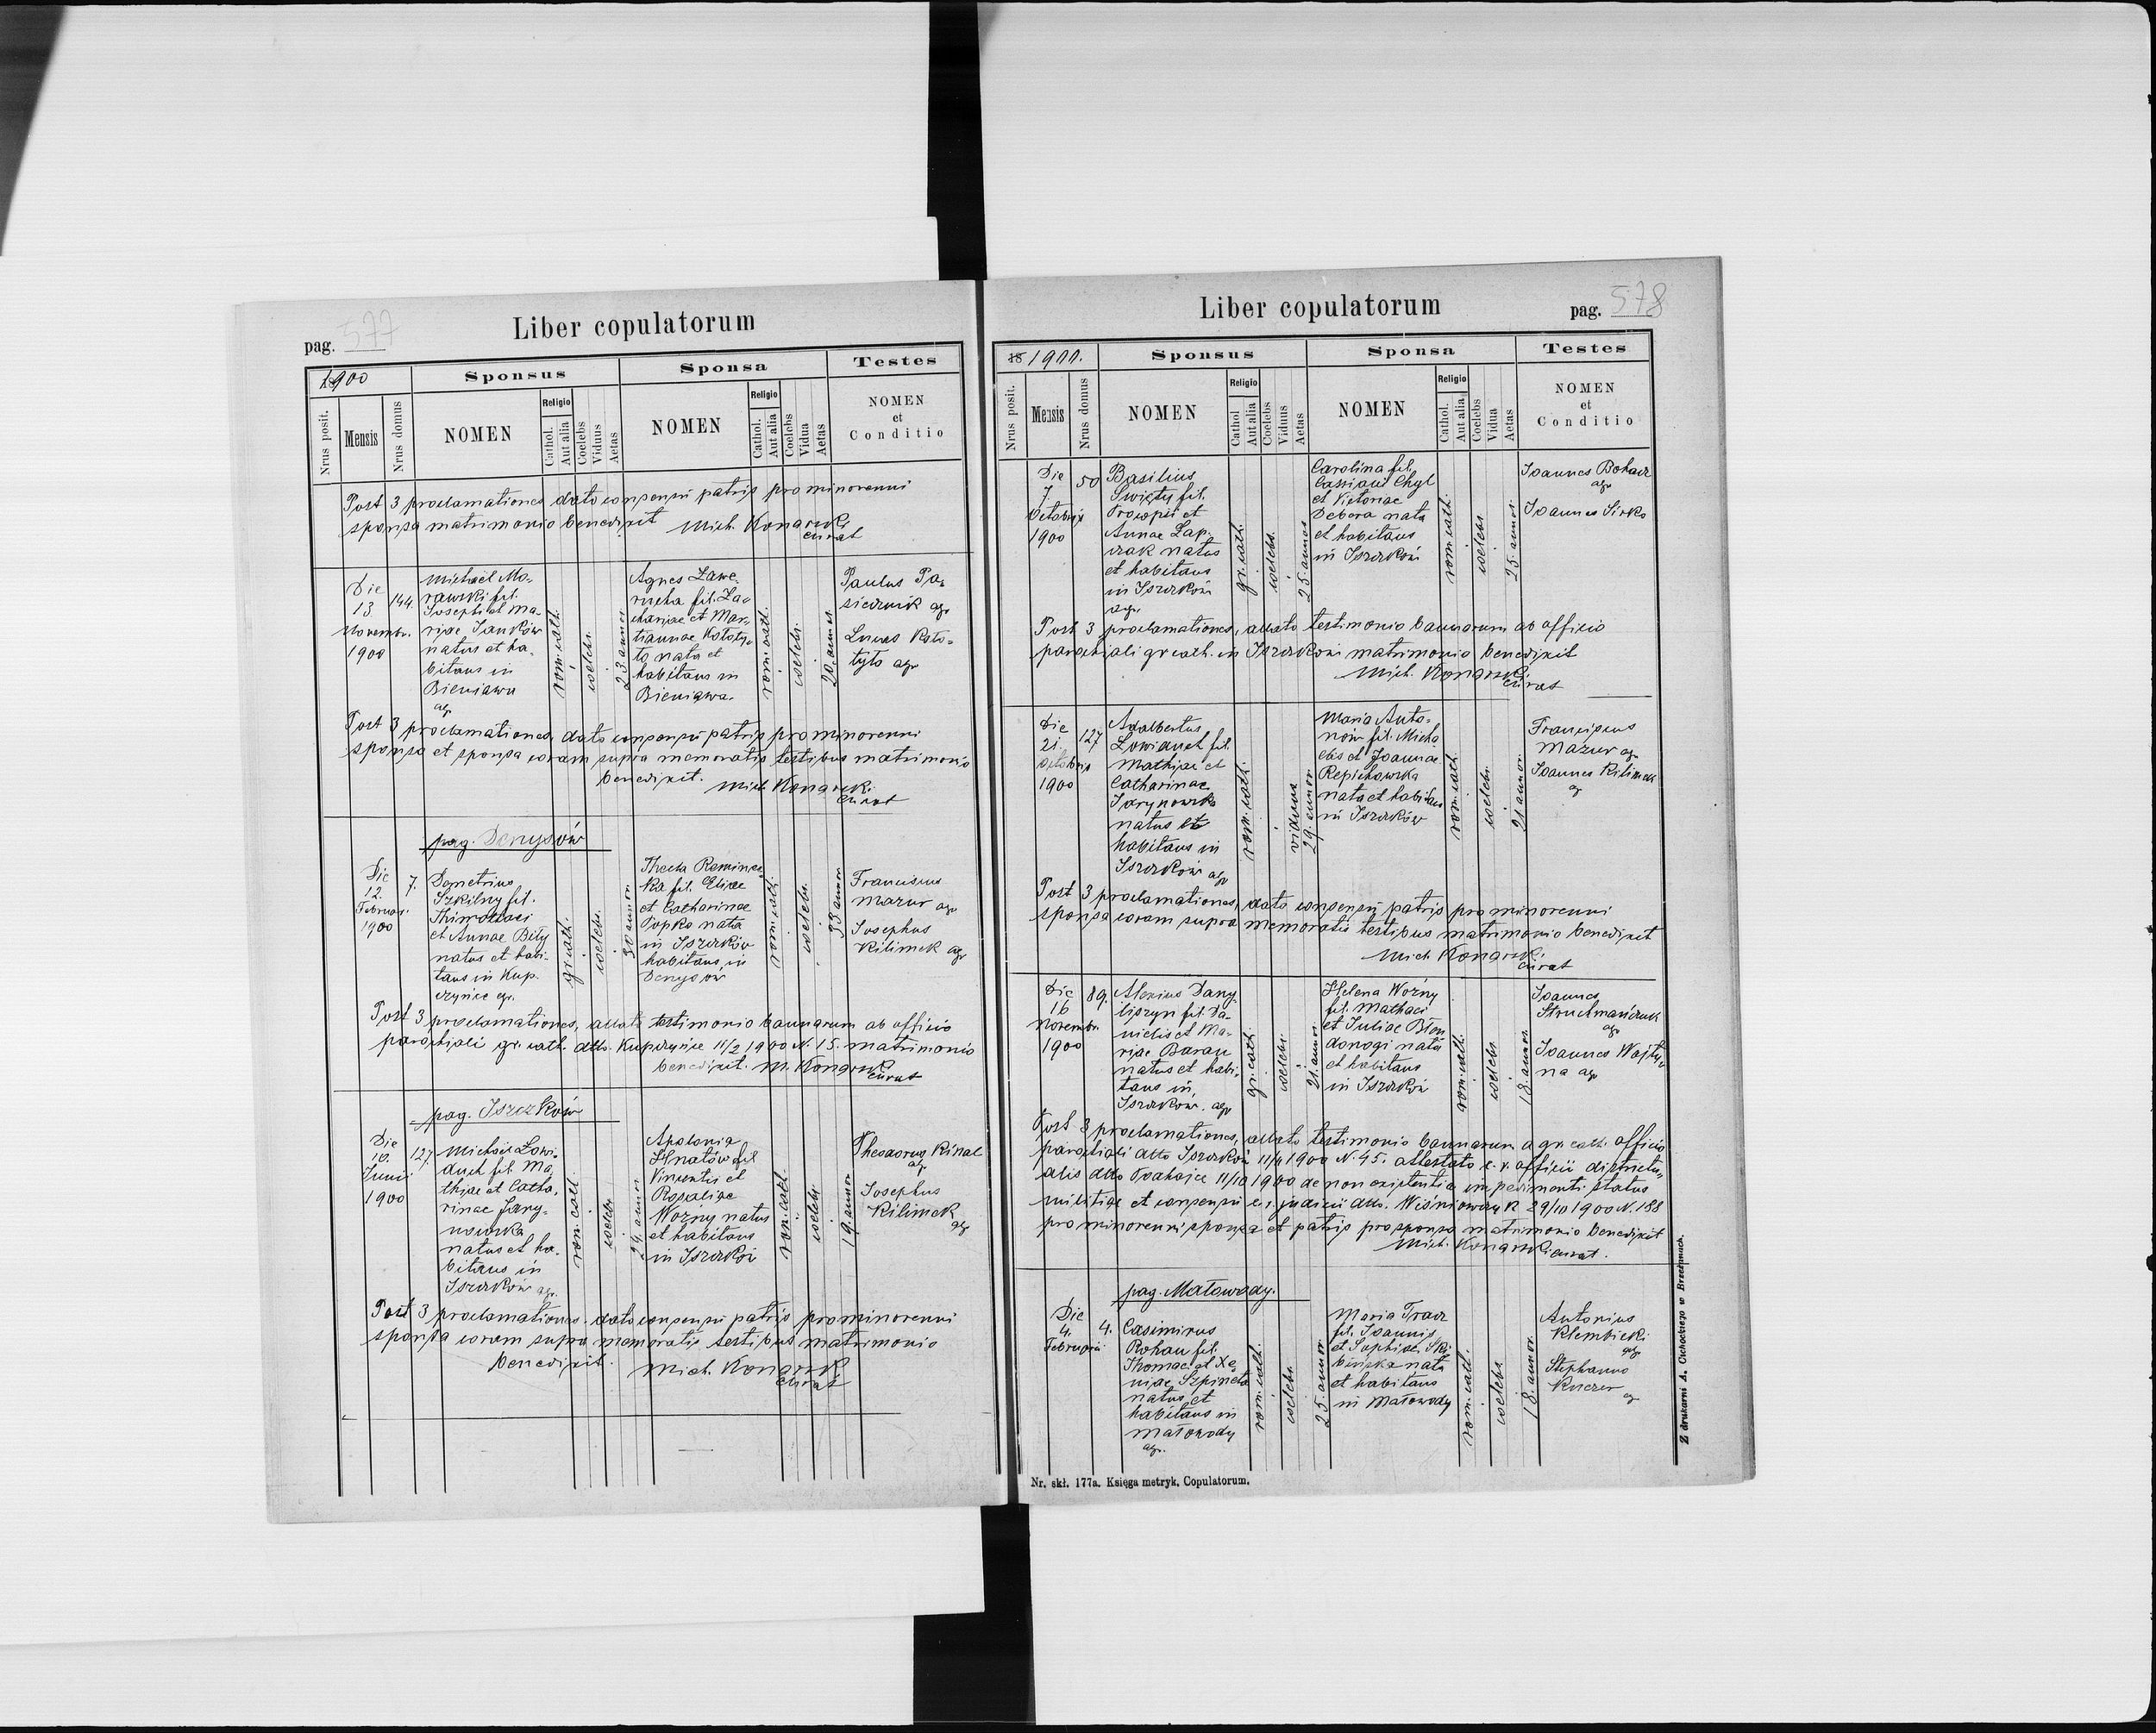 pag. 577
Liber copulatorum
1900
Sponsus
Sponsa
Testes
Nrus posit.
Mensis
Nrus domus
NOMEN
Religio
Cathol.
Aut alia
Coelebs
Viduus
Aetas
NOMEN
Religio
Cathol.
Aut alia
Coelebs
Vidua
Aetas
NOMEN
et
Conditio
Post 3 proclamationes dato consensu patris pro minorenni
sponsa matrimonio benedixit Mich. Konarski
curat
Die
13
Novembr.
1900
144.
Michaël Mo-
rawski fil.
Josephi et Ma-
riae Janków
natus et ha-
bitans in
Bieniawa
agr.
rom. cath.
coelebs.
23. annor.
Agnes Lawe-
rucha fil. Za-
chariae et Mar-
tiannae Kołoty-
ło nata et
habitans in
Bieniawa.
rom. cath.
coelebs.
20. annor.
Paulus Pa-
siecznik agr.
Lucas Koło-
tyło agr.
Post 3 proclamationes, dato consensu patris pro minorenni
sponsa et sponsa coram supra memoratis testibus matrimonio
benedixit. Mich. Konarski
curat
pag. Denysów
Die
12.
Februar.
1900
7.
Demetrius
Szkilny fil.
Thimothaei
et Annae Biły
natus et habi-
tans in Kup-
czyńce agr.
gr. cath.
coelebs.
30 annor.
Thecla
fil. Eliae
et Catharinae
Popko nata
in Iszczków
habitans in
Denysów
rom. cath.
coelebs.
33 annor.
Franciscus
Mazur agr.
Josephus
Kilimek agr.
Post 3 proclamationes, allato testimonio bannorum ab officio
parochiali gr. cath. dtto. Kupczyńce 11/2 1900 N. 15. matrimonio
benedixit. M. Konarski
curat
pag. Iszczków
Die
10.
Junii
1900
127.
Michaël Łowi-
duch fil. Ma-
thiae et Catha-
rinae Jary-
nowska
natus et ha-
bitans in
Iszczków agr.
rom. cath.
coelebs.
24. annor.
Apolonia
Hnatów fil.
Vincentii et
Rosaliae
Woźny natus
et habitans
in Iszczków
rom. cath.
coelebs.
19. annor.
Theodorus Kinal
agr.
Josephus
Kilimek
agr.
Post 3 proclamationes. dato consensu patris pro minorenni
sponsa coram supra memoratis testibus matrimonio
benedixit. Mich. Konarski
curat
Liber copulatorum
pag. 578
18 1900.
Sponsus
Sponsa
Testes
Nrus posit.
Mensis
Nrus domus
NOMEN
Religio
Cathol
Aut alia
Coelebs
Viduus
Aetas
NOMEN
Religio
Cathol.
Aut alia
Coelebs
Vidua
Aetas
NOMEN
et
Conditio
Die
7.
Octobris
1900
50
Basilius
Święty fil.
Procopii et
Annae Łap-
czak natus
et habitans
in Iszczków
agr.
gr. cath.
coelebs.
25. annor
Carolina fil.
Cassiani Chyl
et Victoriae
Debera nata
et habitans
in Iszczków
rom. cath.
coelebs.
25. annor.
Joannes Bohacz
agr.
Joannes Sirko
Post 3 proclamationes, allato testimonio bannorum ab officio
parochiali gr cath. in Iszczków matrimonio benedixit
Mich. Konarski
curat
Die
21.
Octobris
1900
127
Adalbertus
Łowiduch fil.
Mathiae et
Catharinae
Jarynowska
natus et
habitans in
Iszczków agr
rom. cath.
viduus
29. annor.
Maria Anto-
nów fil. Micha-
elis et Joannae
Repichowska
nata et habitans
in Iszczków
rom. cath.
coelebs.
21 annor.
Franciscus
Mazur agr.
Joannes Kilimek
agr
Post 3 proclamationes, dato consensu patris pro minorenni
sponsa coram supra memoratis testibus matrimonio benedixit
Mich. Konarski
curat
Die
16
Novembr.
1900
89.
Alexius Dany-
liszyn fil. Da-
nielis et Ma-
riae Baran
natus et habi-
tans in
Iszczków. agr
gr. cath.
coelebs.
21. annor.
Helena Woźny
fil. Mathaei
et Juliae Błon-
donogi nata
et habitans
in Iszczków
rom. cath.
coelebs
18. annor.
Joannes
Struchmańczuk
agr
Joannes Wojty-
na agr
Post 3 proclamationes, allato testimonio bannorum a gr. cath. officio
parochiali dtto Iszczków 11/11 1900 N. 45. attestato c. r. officii districtu-
alis dtto Podhajce 11/10 1900 de non existentia impedimenti status
militiae et consensu c. r. judicii dtto. Wiśniowczyk 29/10 1900 N. 188
pro minorenni sponso et patris pro sponsa matrimonio benedixit
Mich. Konarski curat.
pag. Małowody.
Die
4.
Februarii
4.
Casimirus
Rohan fil.
Thomae et Xe-
niae Szpineta
natus et
habitans in
Małowody
agr.
rom. cath.
coelebs.
25. annor
Maria Tracz
fil. Joannis
et Sophiae Ski-
bińska nata
et habitans
in Małowody
rom. cath.
coelebs
18. annor.
Antonius
Klembicki
agr
Stephanus
Kuczer
agr
Nr. skł. 177a. Księga metryk. Copulatorum.
Z drukarni A. Cichockiego w Brzeżanach.